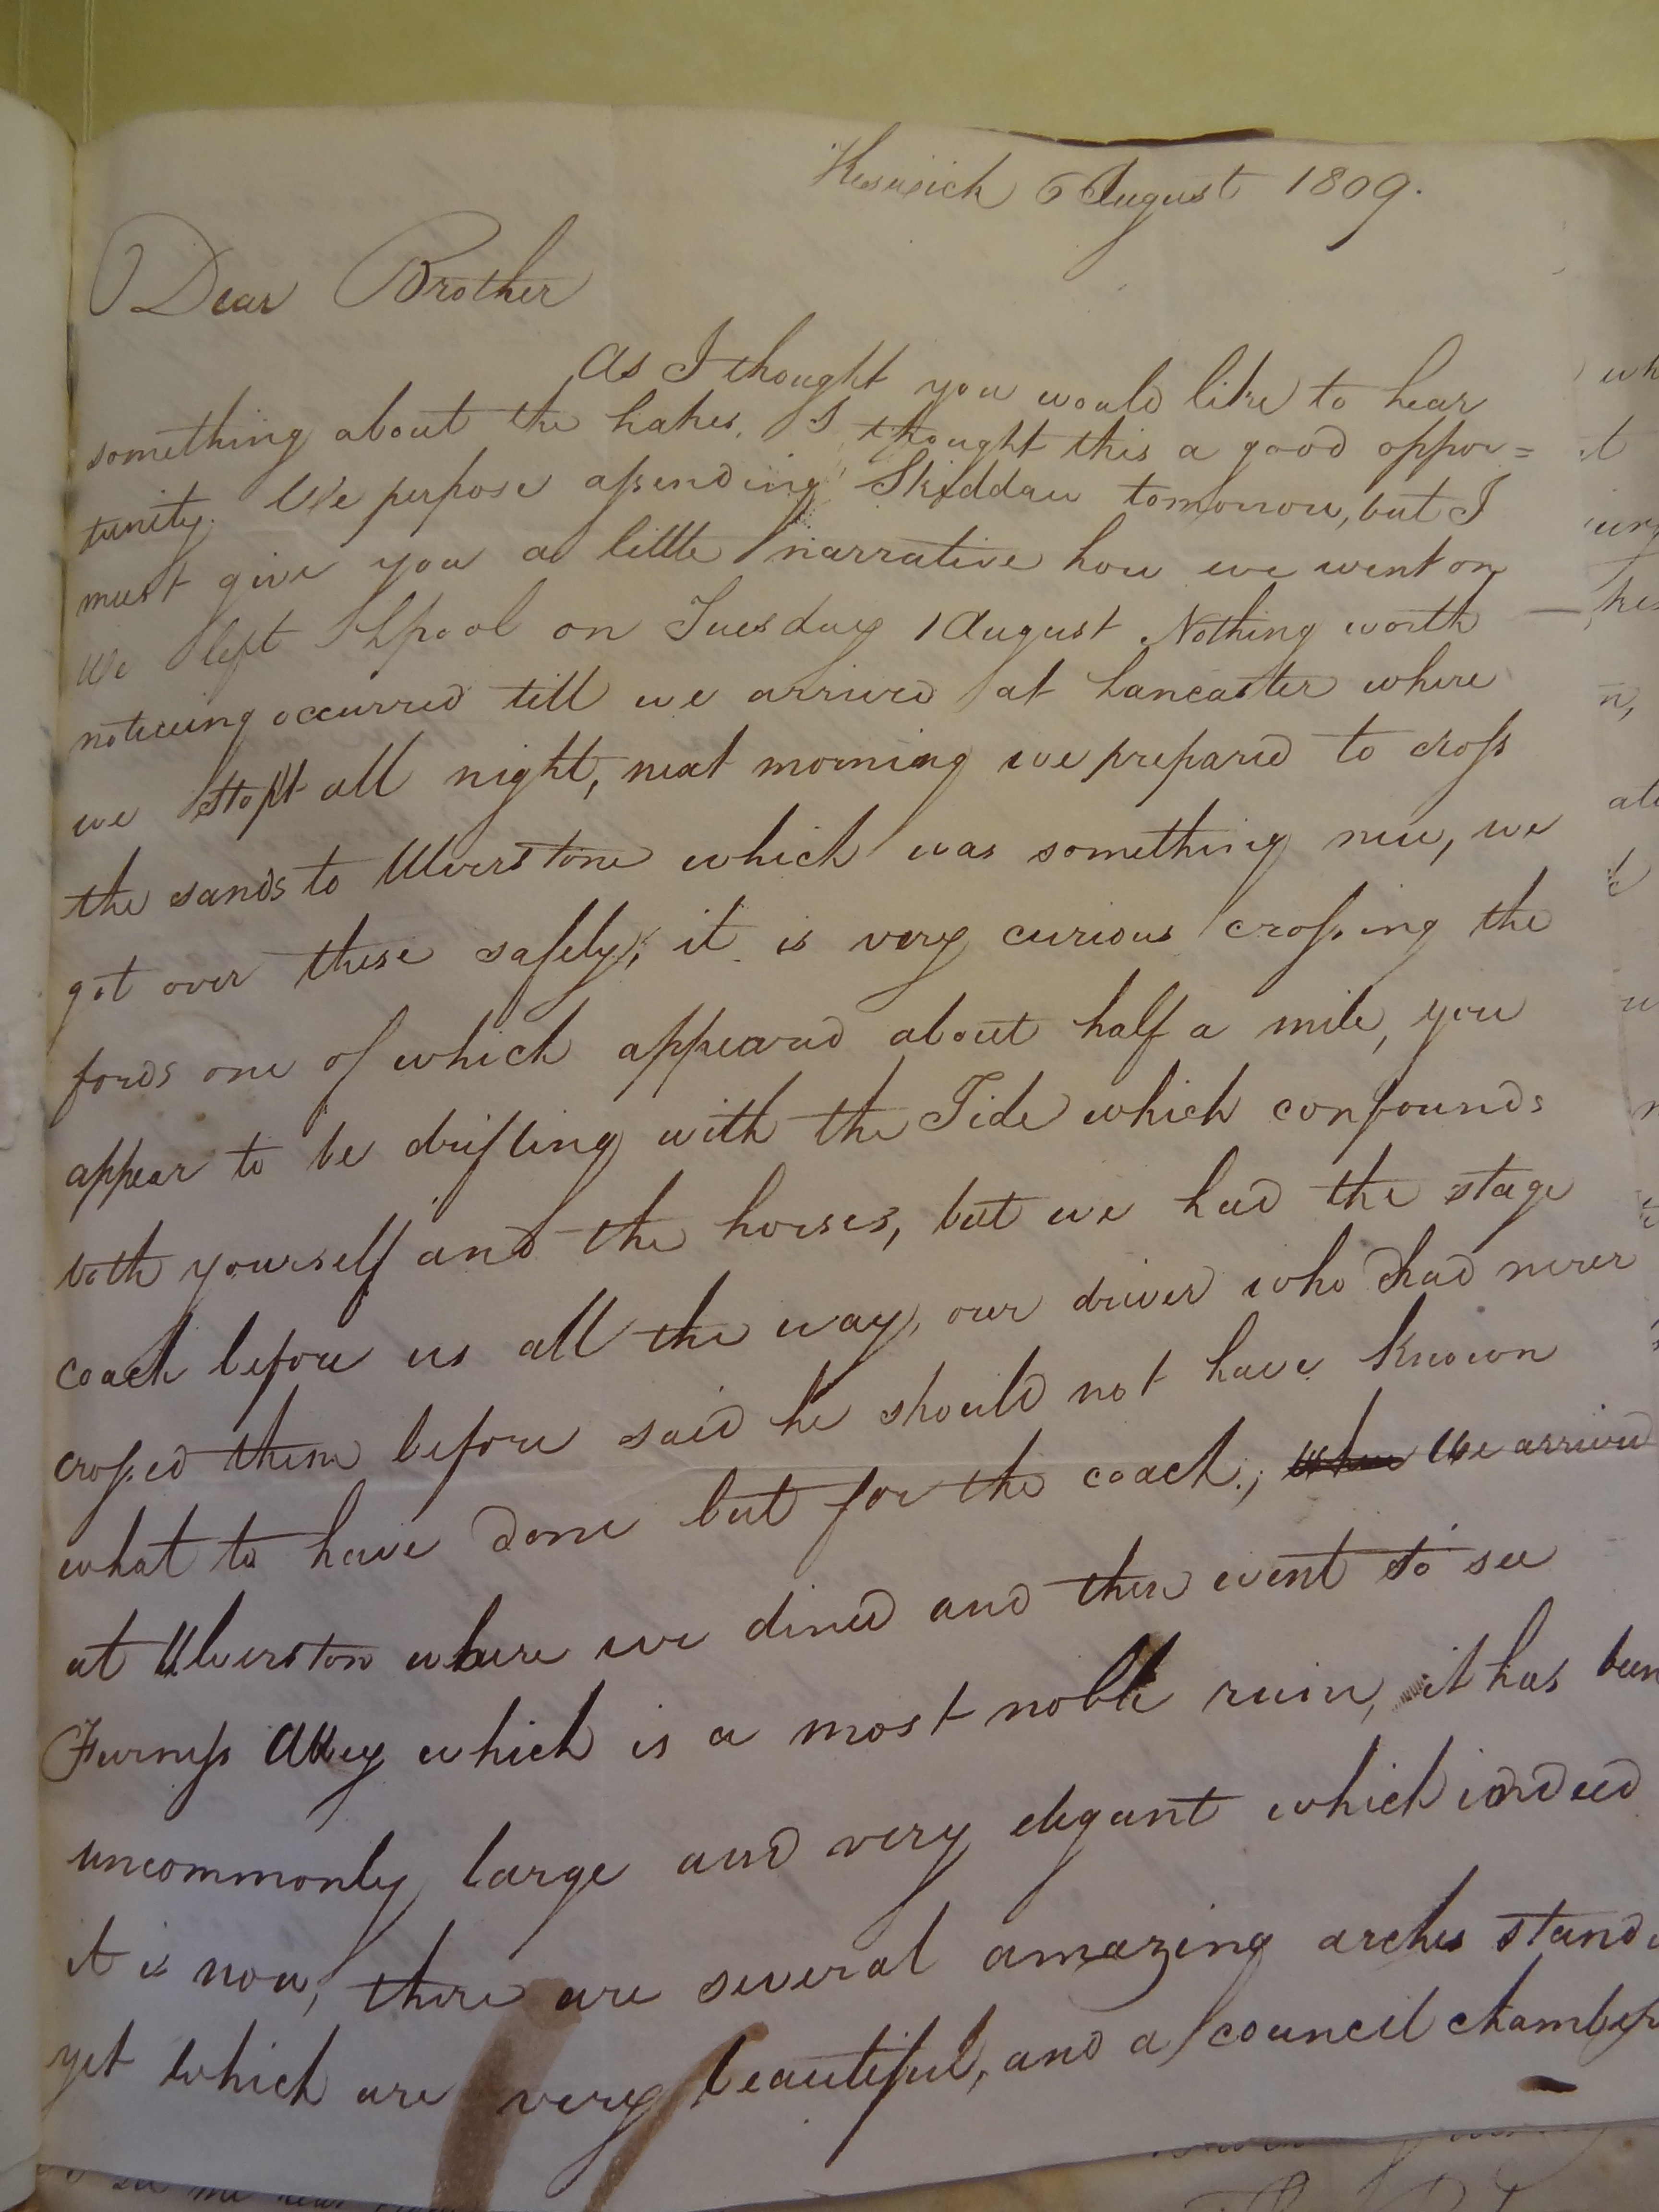 Keswick 6 August 1809.
Dear Brother
As I thought you would like to hear
something about the Lakes, I thought this a good oppor=
tunity. We perpose assending Skiddaw tomorrow, but I
must give you a little narrative how we went on
We left Lpool on Tuesday 1 August Nothing worth
noticeing occurred till we arrived at Lancaster where
we stopt all night, next morning we prepared to cross
the sands to Ulverstone which was something new, we
got over these safely, it is very curious crossing the
fords one of which appeared about half a mile, you
appear to be drifting with the Tide which confounds
both yourself and the horses, but we had the stage
coach before us all the way, our driver who had never
crossed them before said he should not have known
what to have done but for the coach; When We arrived
at Ulverston where we dined and then went to see
Furness Abbey which is a most noble ruin, it has been
uncommonly large and very elegant which indeed
it is now, there are several amazing arches stand
yet which are very beautiful, and a council chamber